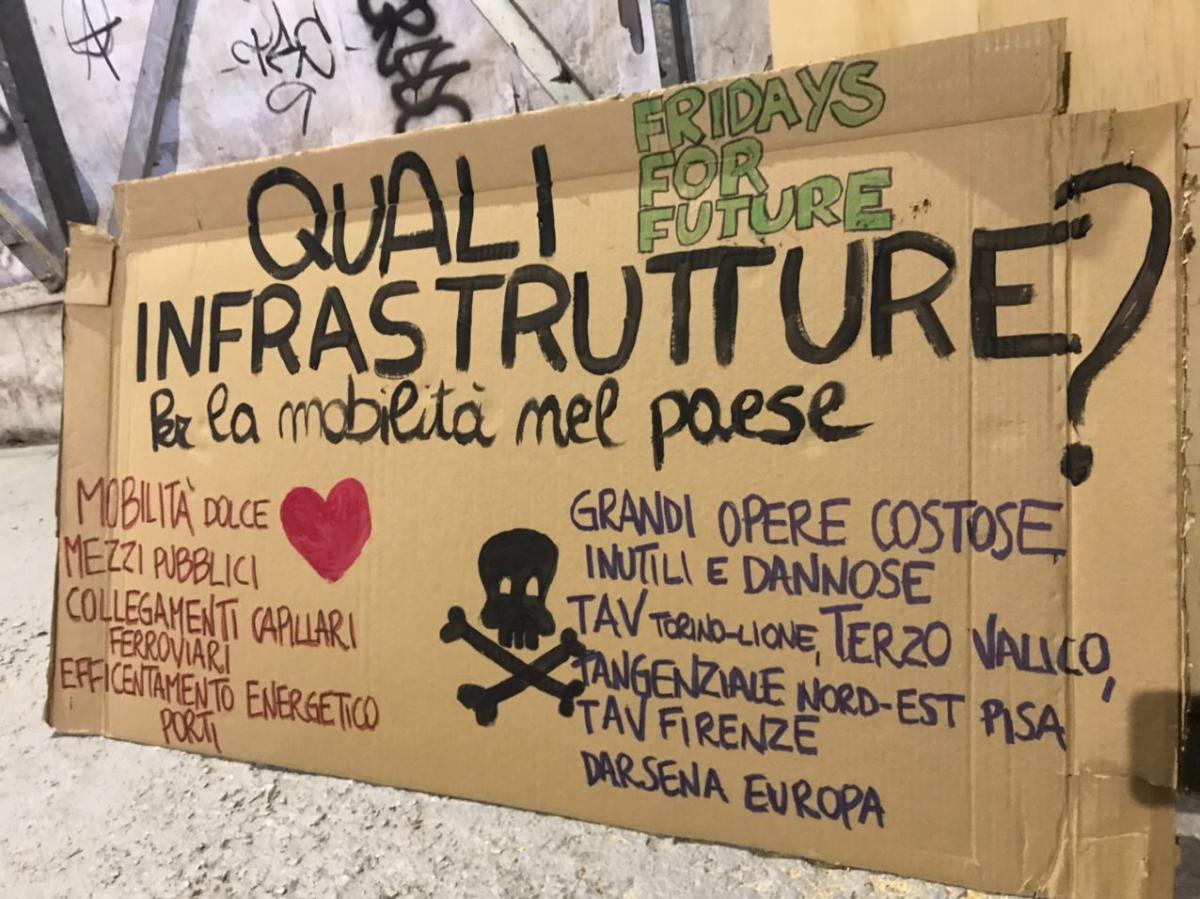 FRIDAYS
FOR
FUTURE
QUALI
INFRASTRUTTURE?
Per la mobilità nel paese
MOBILITÀ DOLCE
MEZZI PUBBLICI
COLLEGAMENTI CAPILLARI
FERROVIARI
EFFICENTAMENTO ENERGETICO
PORTI
GRANDI OPERE COSTOSE
INUTILI E DANNOSE
TAV TORINO-LIONE, TERZO VALICO,
TANGENZIALE NORD-EST PISA
TAV FIRENZE
DARSENA EUROPA